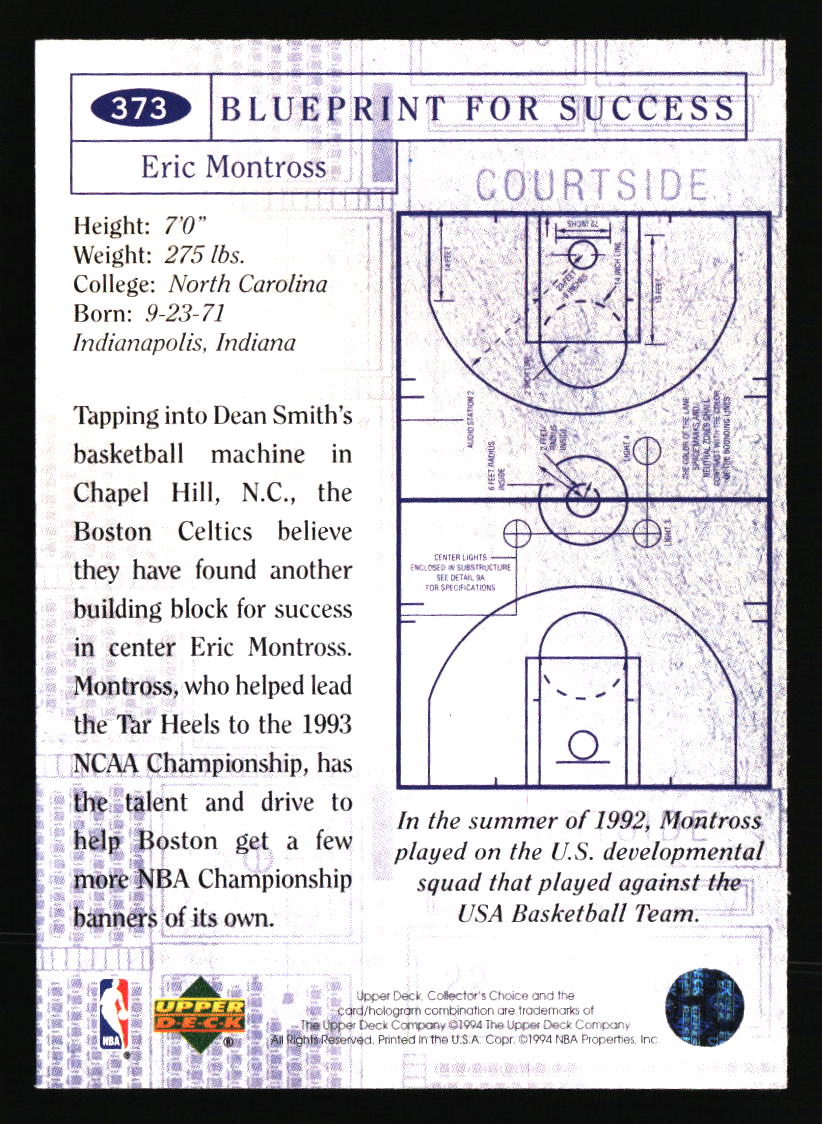 373
BLUEPRINT FOR SUCCESS
Eric Montross
COURTSIDE
Height: 7'0"
Weight: 275 lbs.
College: North Carolina
Born: 9-23-71
Indianapolis, Indiana
Tapping into Dean Smith's
basketball machine in
Chapel Hill, N.C., the
Boston Celtics believe
they have found another
building block for success
in center Eric Montross.
Montross, who helped lead
the Tar Heels to the 1993
NCAA Championship, has
the talent and drive to
help Boston get a few
more NBA Championship
banners of its own.
72 INCHES
14 FEET
2 INCH LINE
AUDIO STATION 2
6 FEET RADIUS
INSIDE
2 FEET
RADIUS
INSIDE
LIGHT 4
THE COLOR OF THE LANE
SPACE MARKS AND
NEUTRAL ZONES SHALL
CONTRAST WITH THE COLOR
OF THE BOUNDING LINES
LIGHT 3
CENTER LIGHTS
ENCLOSED IN SUBSTRUCTURE
SEE DETAIL 9A
FOR SPECIFICATIONS
In the summer of 1992, Montross
played on the U.S. developmental
squad that played against the
USA Basketball Team.
NBA
®
UPPER
DECK
®
Upper Deck, Collector's Choice and the
card/hologram combination are trademarks of
The Upper Deck Company ©1994 The Upper Deck Company.
All Rights Reserved. Printed in the U.S.A. Copr. ©1994 NBA Properties, Inc